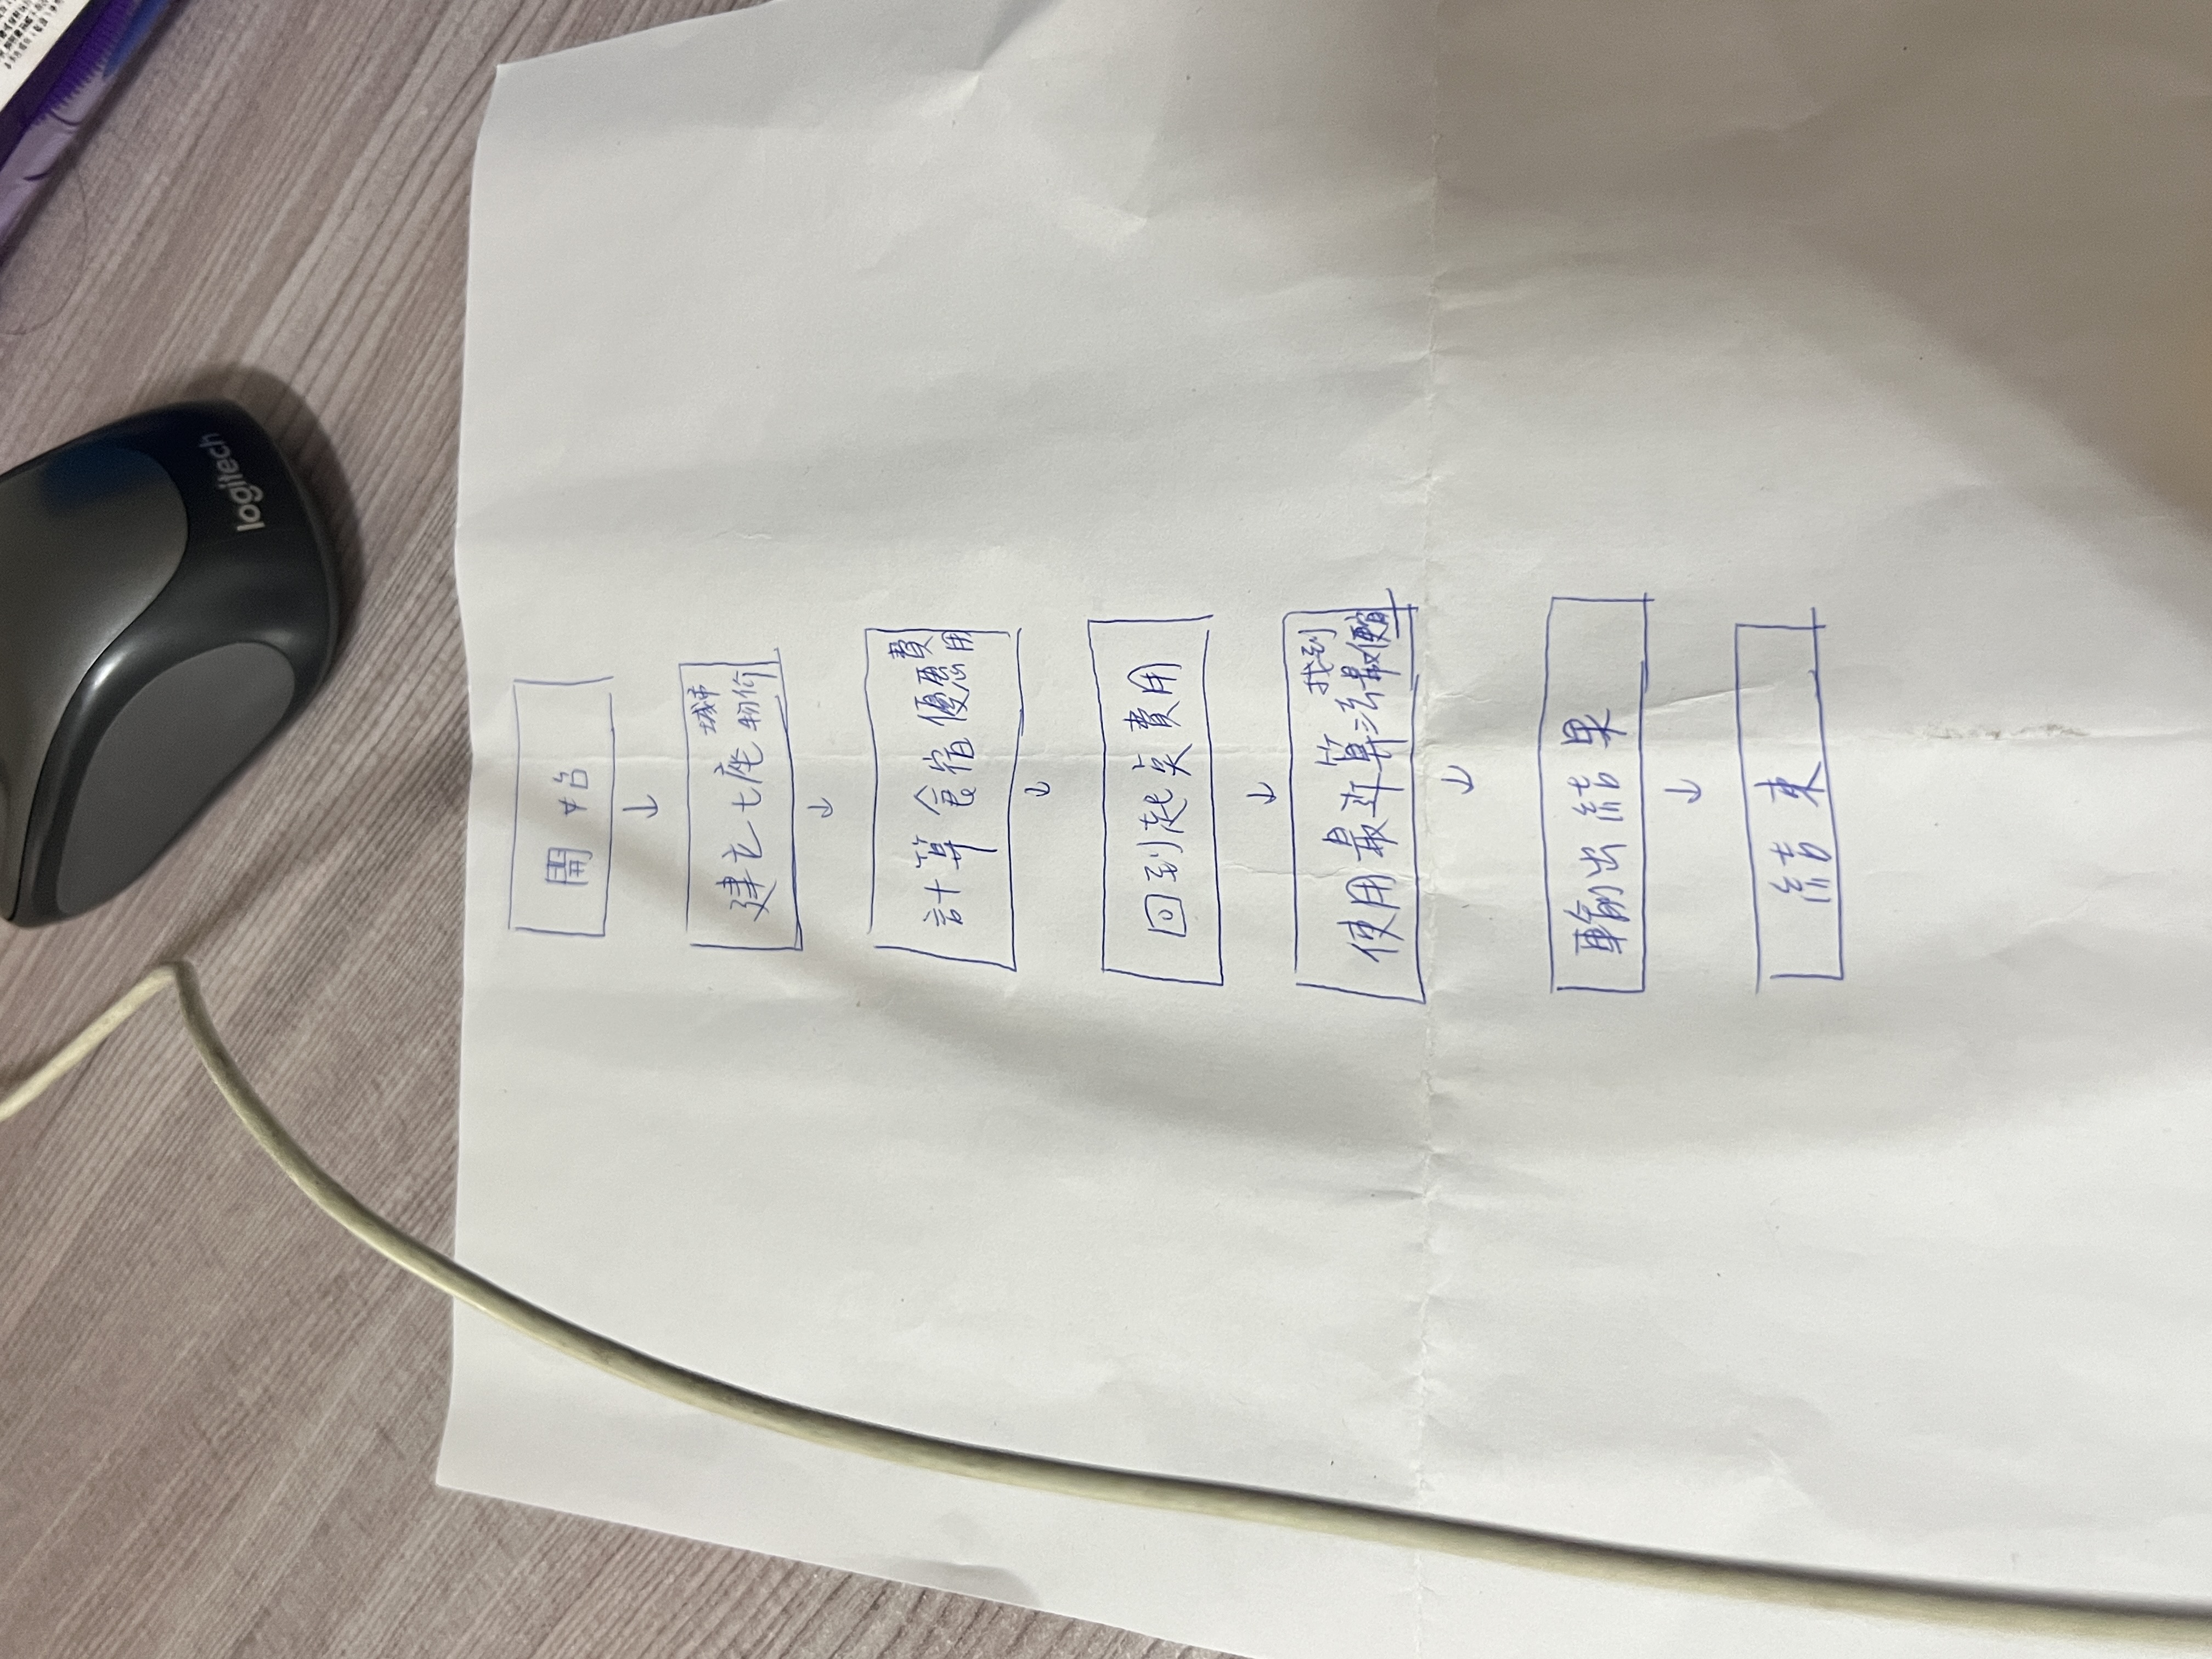 logitech
開始
↓
建立七座城市物价
↓
計算食宿優惠費用
↓
回到起奌費用
↓
使用最近算法找到最便宜
↓
輸出結果
↓
結束